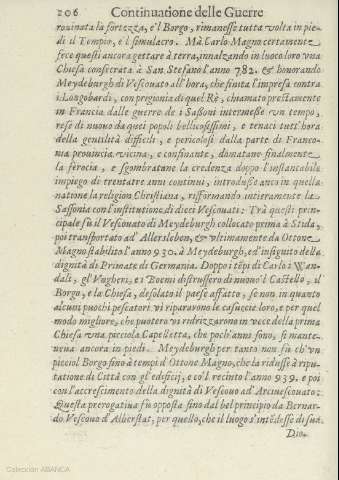 206 Continuatione delle Guerre
rouinata la fortezza, e'l Borgo, rimanesse tutta volta in pie-
di il Tempio, e l simulacro. Mà Carlo Magno certamente
fece questi ancora gettare à terra, innalzando in luoco loro vna
Chiesa consecrata à San Stefano l'anno 782. & honorando
Meydeburgh di Vescouato all'hora, che finita l'impresa contra
i Longobardi, con prigionia di quel Rè, chiamato prestamente
in Francia dalle guerre de i Sassoni intermesse vn tempo,
rese di nuouo da quei popoli bellicosissimi, e tenaci tutt'hora
della gentilità difficili, e pericolosi dalla parte di Franco-
nia prouincia vicina, e confinante, domatane finalmente
la ferocia, e sgombratane la credenza doppo l'instancabile
impiego di trentatre anni continui, introdusse anco in quella
natione la religion Christiana, rifformando intieramente la
Sassonia con l'institutione di dieci Vescouati: Trà questi prin-
cipale fù il Vescouato di Meydeburgh collocato prima à Stida,
poi transportato ad Allersleben, & vltimamente da Ottone
Magno stabilito l'anno 930. à Meydeburgh, ed insignito della
dignità di Primate di Germania. Doppo i tēpi di Carlo i Wan-
dali, gl'Vngheri, e i Boemi distrussero di nuouo'l Castello, il
Borgo, e la Chiesa, desolato il paese affatto, se non in quanto
alcuni puochi pescatori vi ripararono le casuccie loro, e per quel
modo migliore, che puotero vi ridrizzarono in vece della prima
Chiesa vna picciola Capelletta, che poch'anni sono, si mante-
neua ancora in piedi. Meydeburgh per tanto non fù ch'vn
picciol Borgo sino à tempi d'Ottone Magno, che la ridusse à ripu-
tatione di Città con gl'edificij, e co'l recinto l'anno 939. e poi
con l'accrescimento della dignità di Vescouo ad Arciuescouato:
Questa prerogatiua fù opposta sino dal bel principio da Bernar-
do Vescouo d'Alberstat, per quello, che il luogo s'intēdesse di sua
Dio-
Colección ABANCA